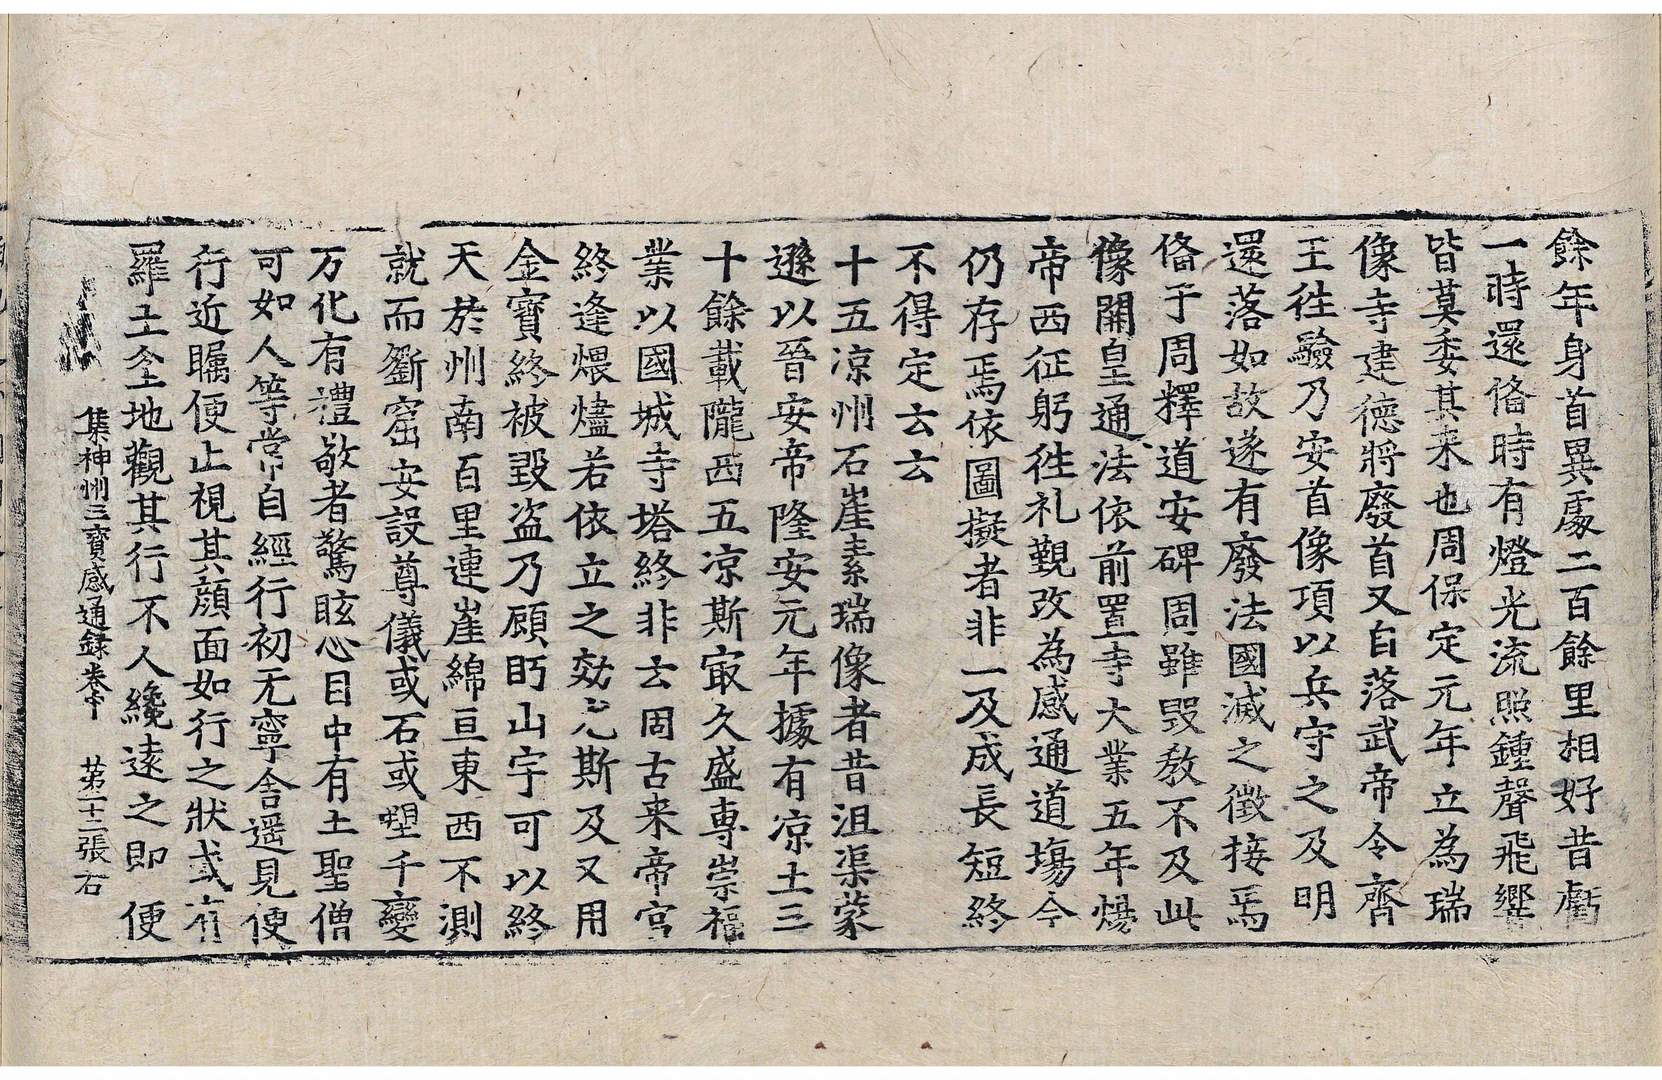 餘年身首異處二百餘里相好昔虧
一時還俻時有燈光流照鍾聲飛響
皆莫委其来也周保定元年立為瑞
像寺建德將廢首又自落武帝令齊
王徃驗乃安首像項以兵守之及明
還落如故遂有廢法國滅之徵接焉
俻于周釋道安碑周雖毀教不及此
像開皇通法依前置寺大業五年煬
帝西征躬徃礼觀改為感通道塲今
仍存焉依圖擬者非一及成長短終
不得定云云
十五凉州石崖素瑞像者昔沮渠蒙
遜以晉安帝隆安元年據有凉土三
十餘載隴西五凉斯㝡久盛專崇福
業以國城寺塔終非云固古来帝宮
終逢煨燼若依立之效尤斯及又用
金寶終被毀盗乃顧眄山宇可以終
天於州南百里連崖綿亘東西不測
就而斵窟安設尊儀或石或塑千變
万化有禮敬者驚眩心目中有土聖僧
可如人等常自經行初无寧舍遥見便
行近矚便止視其顔面如行之狀或有
羅土坌地觀其行不人纔遠之即便
集神州三寶感通録卷中　第二十二張　右